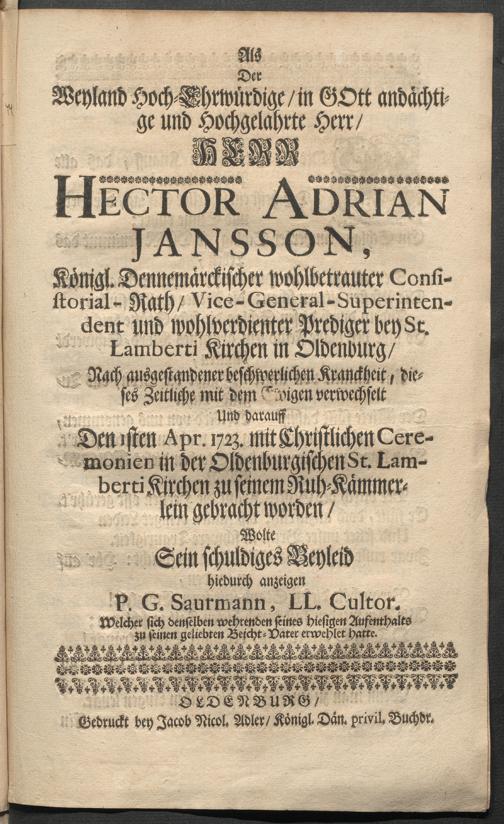 Als
Der
Weyland Hoch-Ehrwürdige/in GOtt andächti-
ge und Hochgelahrte Herr/
HERR
HECTOR ADRIAN
JANSSON,
Königl. Dennemärckischer wohlbetrauter Consi-
storial-Rath/Vice-General-Superinten-
dent und wohlverdienter Prediger bey St.
Lamberti Kirchen in Oldenburg/
Nach ausgestandener beschwerlichen Kranckheit, die-
ses Zeitliche mit dem Ewigen verwechselt
Und darauff
Den 1sten Apr. 1723. mit Christlichen Cere-
monien in der Oldenburgischen St. Lam-
berti Kirchen zu seinem Ruh-Kämmer-
lein gebracht worden/
Wolte
Sein schuldiges Beyleid
hiedurch anzeigen
P. G. Saurmann, LL. Cultor.
Welcher sich denselben wehrenden seines hiesigen Aufenthalts
zu seinen geliebten Beicht-Vater erwehlet hatte.
OLDENBURG/
Gedruckt bey Jacob Nicol. Adler/Königl. Dän. privil. Buchdr.